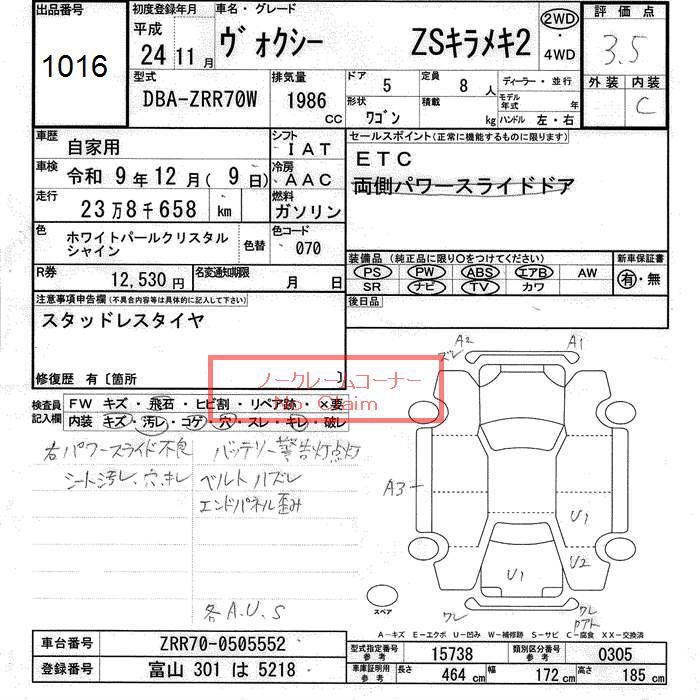 出品番号
1016
初度登録年月
平成
24 11月
車名・グレード
ヴォクシー ZSキラメキ2
2WD
・
4WD
評価点
3.5
外装 内装
C
型式
DBA-ZRR70W
排気量
1986 CC
ドア 5
形状 ワゴン
定員 8人
積載 kg
ディーラー・並行
モデル年式 年
ハンドル 左・右
車歴 自家用
シフト IAT
車検 令和 9年 12月( 9日)
冷房 AAC
走行 23万8千658 km
燃料 ガソリン
色 ホワイトパールクリスタルシャイン
色替
色コード 070
R券 12,530円
名変通知期限 月 日
セールスポイント(正常に機能するものに限ります)
ETC
両側パワースライドドア
装備品(純正品に限り○をつけてください)
PS PW ABS エアB AW
SR ナビ TV カワ
新車保証書
有・無
後日品
注意事項申告欄(不具合内容等は具体的に記入して下さい)
スタッドレスタイヤ
修復歴 有〔箇所 〕
ノークレームコーナー
No Claim
検査員記入欄
FW キズ・飛石・ヒビ割・リペア跡・×要
内装 キズ・汚レ・コゲ・穴・スレ・キレ・破レ
右パワースライド不良 バッテリー警告灯点灯
シート汚レ、穴、キレ ベルトハズレ
エンドパネル歪み
各A.U.S
A2
ズレ
A1
A3
U1
U2
U1
ワレ
ワレ
Pアト
スペア
A-キズ E-エクボ U-凹み W-補修跡 S-サビ C-腐食 XX-交換済
車台番号 ZRR70-0505552
登録番号 富山 301 は 5218
型式指定番号 参考 15738
類別区分番号 参考 0305
車庫証明用 参考 長さ 464 cm 幅 172 cm 高さ 185 cm